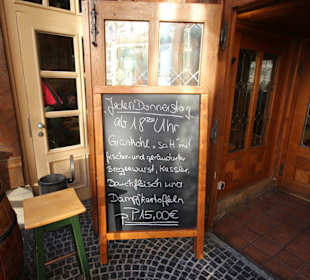 Jeden Donnerstag
ab 18⁰⁰ Uhr
Grünkohl „satt" mit
frischer und geräucherter
Bregenwurst, Kassler,
Bauchfleisch und
Dampfkartoffeln
P.P 15,00€